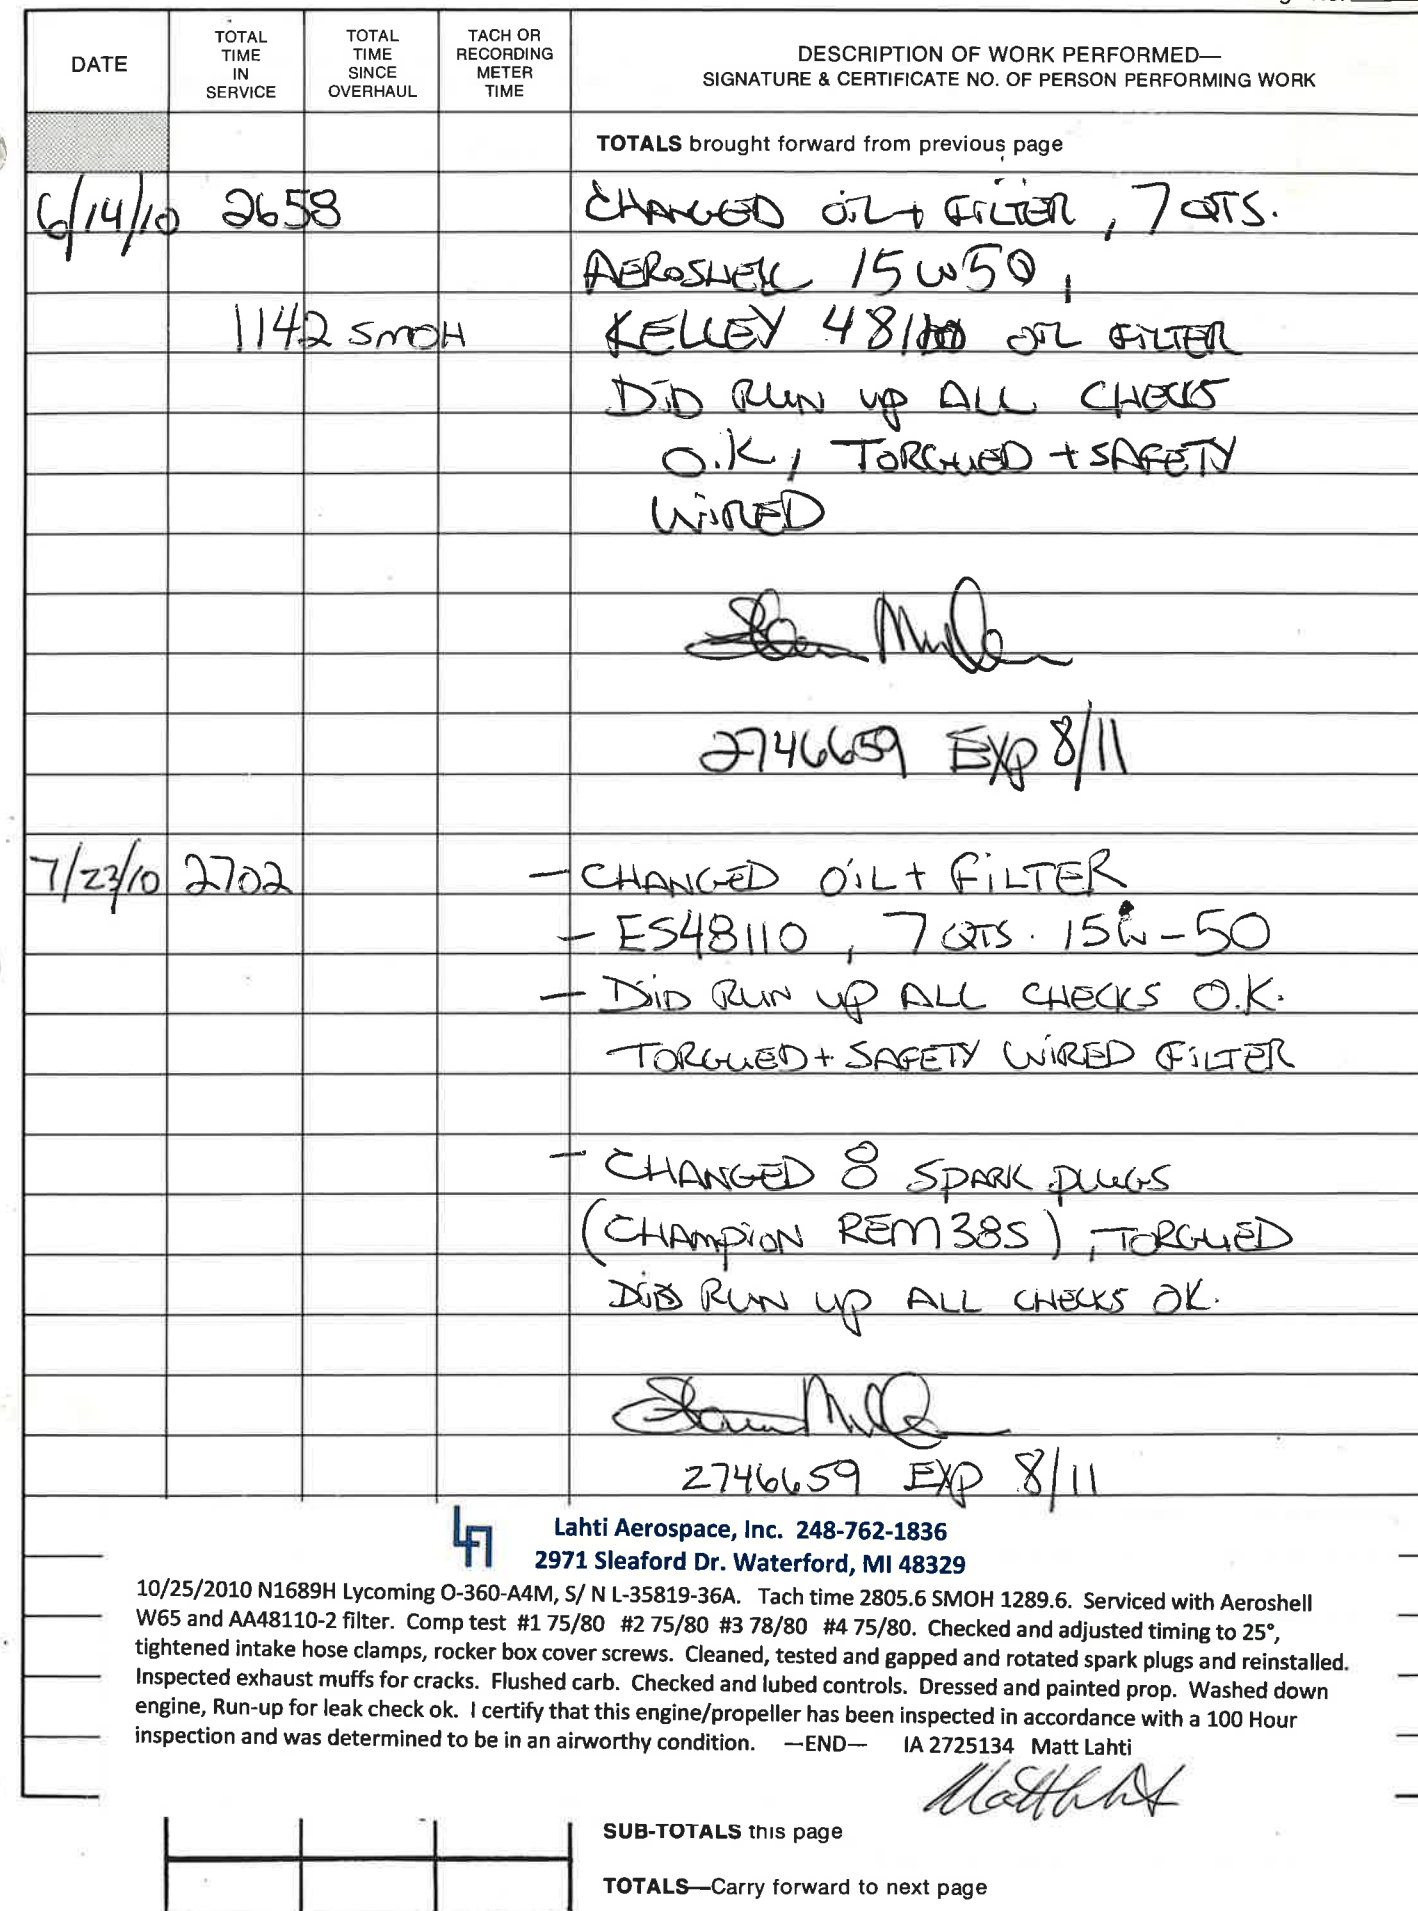 DATE
TOTAL TIME IN SERVICE
TOTAL TIME SINCE OVERHAUL
TACH OR RECORDING METER TIME
DESCRIPTION OF WORK PERFORMED—
SIGNATURE & CERTIFICATE NO. OF PERSON PERFORMING WORK
TOTALS brought forward from previous page
6/14/10 2658 CHANGED OIL + FILTER, 7 QTS.
AEROSHELL 15W50,
1142 SMOH KELLEY 48110 OIL FILTER
DID RUN UP ALL CHECKS
O.K, TORQUED + SAFETY
WIRED
2746659 EXP 8/11
7/23/10 2702 - CHANGED OIL + FILTER
- ES48110, 7 QTS. 15W-50
- DID RUN UP ALL CHECKS O.K.
TORQUED + SAFETY WIRED FILTER
- CHANGED 8 SPARK PLUGS
(CHAMPION REM38S), TORQUED
DID RUN UP ALL CHECKS OK.
2746659 EXP 8/11
Lahti Aerospace, Inc. 248-762-1836
2971 Sleaford Dr. Waterford, MI 48329
10/25/2010 N1689H Lycoming O-360-A4M, S/ N L-35819-36A. Tach time 2805.6 SMOH 1289.6. Serviced with Aeroshell
W65 and AA48110-2 filter. Comp test #1 75/80 #2 75/80 #3 78/80 #4 75/80. Checked and adjusted timing to 25°,
tightened intake hose clamps, rocker box cover screws. Cleaned, tested and gapped and rotated spark plugs and reinstalled.
Inspected exhaust muffs for cracks. Flushed carb. Checked and lubed controls. Dressed and painted prop. Washed down
engine, Run-up for leak check ok. I certify that this engine/propeller has been inspected in accordance with a 100 Hour
inspection and was determined to be in an airworthy condition. —END— IA 2725134 Matt Lahti
SUB-TOTALS this page
TOTALS—Carry forward to next page